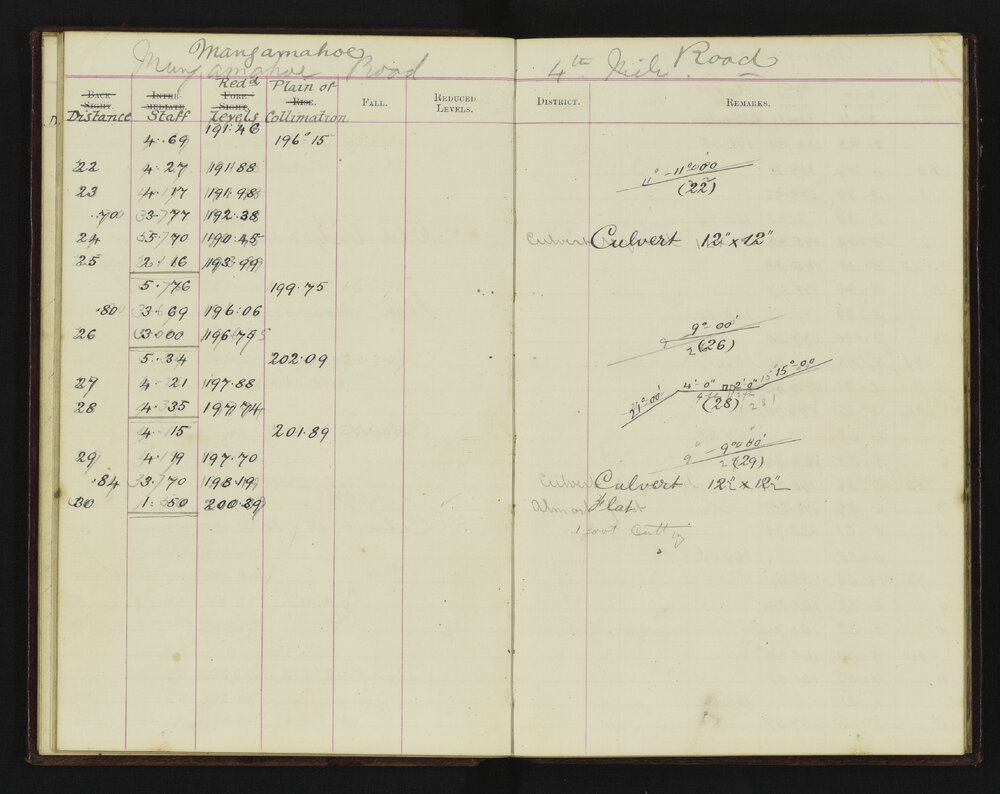 Mangamahoe Road
Mangamahoe Road 4th Mile
Back Sight. Inter- mediate. Fore Sight. Rise. Fall. Reduced Levels. District. Remarks.
Distance Staff Red'd Levels Plain of Collimation
191.46
4.69 196.15
22 4.27 191.88
11° - 11°00
(22)
23 4.17 191.98
.700 3.77 192.38
24 5.70 190.45 Culvert 12" x 12"
25 2.16 193.99
5.76 199.75
.80 3.69 196.06
26 3.00 196.75
9° 00'
(26)
5.34 202.09
27 4.21 197.88
21°.00' 4'- 0" 2'.0" 15°-00
28 4.35 197.74 (28)
4.15 201.89
29 4.19 197.70
9° - 9°00'
(29)
.84 3.70 198.19 Culvert 12" x 12"
30 1.50 200.39 Almost flat
1 foot Cutting